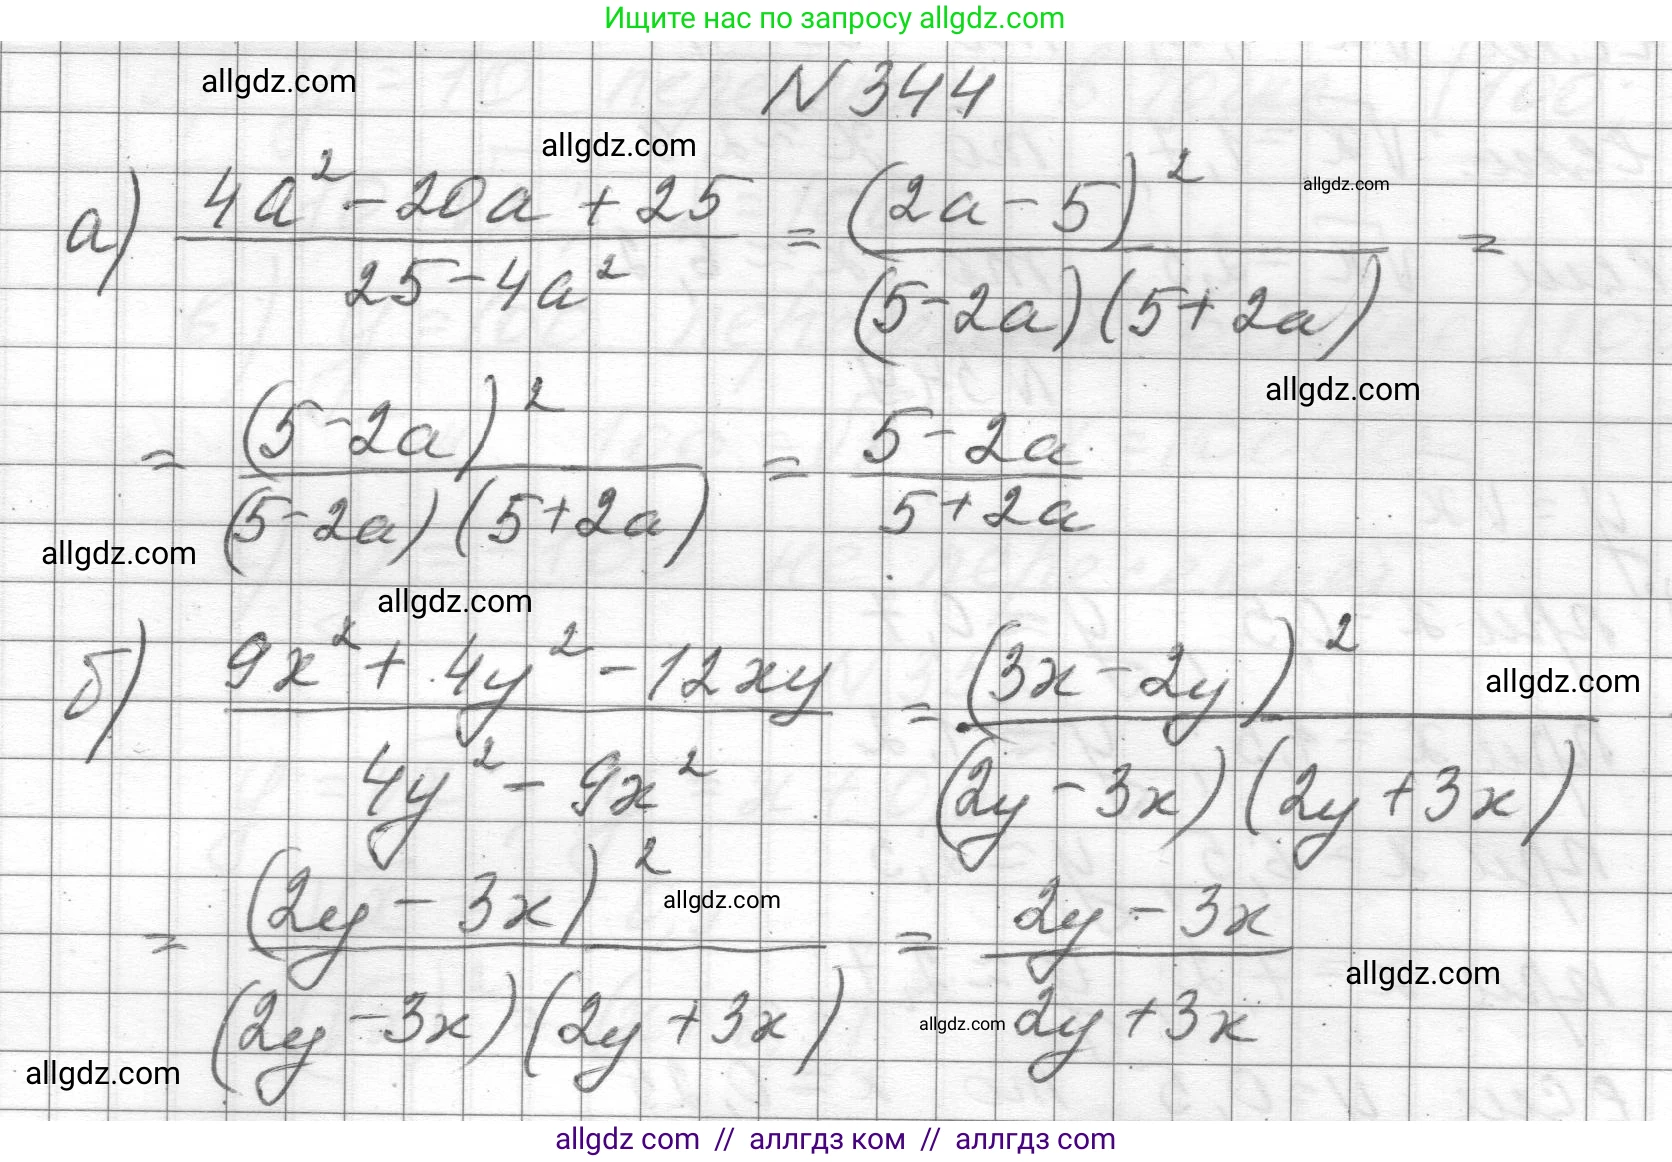 Ищите нас по запросу allgdz.com
allgdz.com
N 344
allgdz.com
allgdz.com
а) (4a² - 20a + 25)/(25 - 4a²) = (2a - 5)²/((5 - 2a)(5 + 2a)) =
allgdz.com
= (5 - 2a)²/((5 - 2a)(5 + 2a)) = (5 - 2a)/(5 + 2a)
allgdz.com
allgdz.com
б) (9x² + 4y² - 12xy)/(4y² - 9x²) = (3x - 2y)²/((2y - 3x)(2y + 3x))
allgdz.com
allgdz.com
= (2y - 3x)²/((2y - 3x)(2y + 3x)) = (2y - 3x)/(2y + 3x)
allgdz.com
allgdz.com
allgdz.com
allgdz com // аллгдз ком // аллгдз com